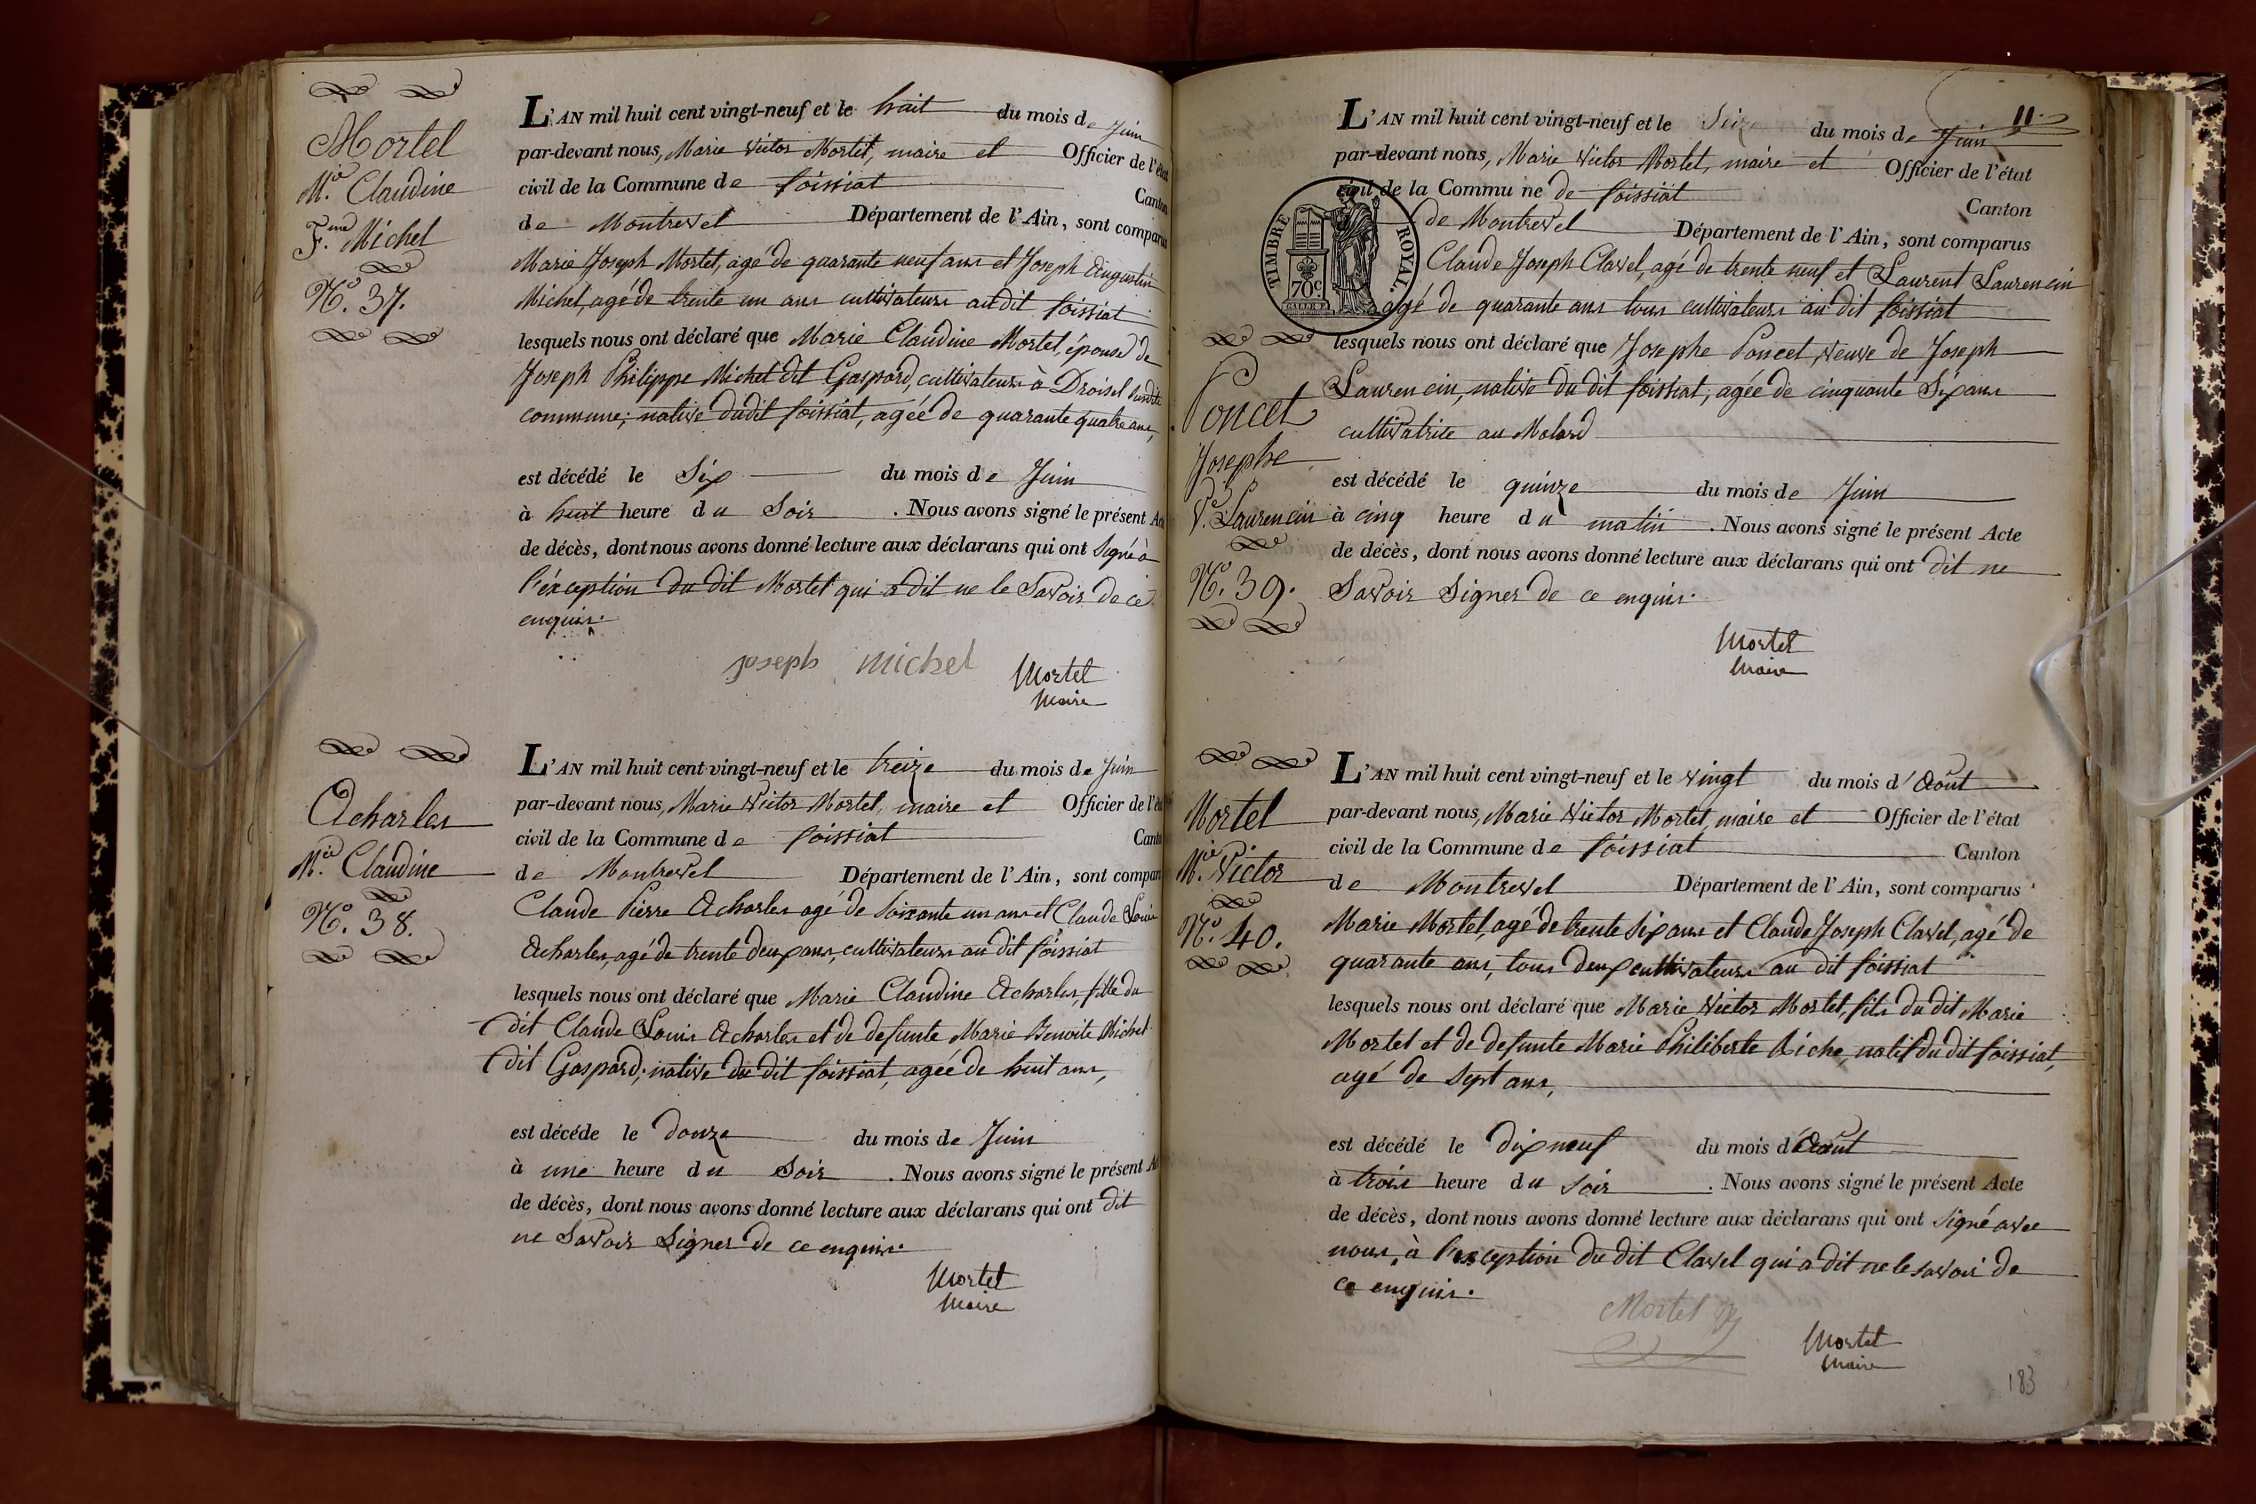 Mortel
M.ie Claudine
F.me Michel
N.o 37.
L'AN mil huit cent vingt-neuf et le huit du mois de Juin
par-devant nous, Marie Victor Mortel, maire et Officier de l'état
civil de la Commune de foissiat Canton
de Montrevel Département de l'Ain, sont comparus
Marie Joseph Mortel, agé de quarante neuf ans et Joseph Augustin
Michel, agé de trente un ans cultivateurs audit foissiat
lesquels nous ont déclaré que Marie Claudine Mortel, épouse de
Joseph Philippe Michel dit Gaspard, cultivateurs à Droisel susdite
commune; native dudit foissiat, agée de quarante quatre ans,
est décédé le Six du mois de Juin
à huit heure du Soir . Nous avons signé le présent Acte
de décès, dont nous avons donné lecture aux déclarans qui ont Signé à
l'éxception du dit Mortel qui a dit ne le Savoir de ce
enquis.
joseph michel
Mortel
Maire
Acharles
M.ie Claudine
N.o 38.
L'AN mil huit cent vingt-neuf et le treize du mois de Juin
par-devant nous, Marie Victor Mortel, maire et Officier de l'état
civil de la Commune de foissiat Canton
de Montrevel Département de l'Ain, sont comparus
Claude Pierre Acharles agé de Soixante un ans et Claude Louis
Acharles, agé de trente deux ans, cultivateurs au dit foissiat
lesquels nous ont déclaré que Marie Claudine Acharles, fille du
dit Claude Louis Acharles et de defunte Marie Benoite Michel
dit Gaspard, native du dit foissiat, agée de huit ans,
est décéde le douze du mois de Juin
à une heure du Soir . Nous avons signé le présent Acte
de décès, dont nous avons donné lecture aux déclarans qui ont dit
ne Savoir Signer de ce enquis.
Mortel
Maire
11.
TIMBRE ROYAL.
70c
L'AN mil huit cent vingt-neuf et le Seize du mois de Juin
par-devant nous, Marie Victor Mortel, maire et Officier de l'état
civil de la Commu ne de foissiat
de Montrevel Canton
Département de l'Ain, sont comparus
Claude Joseph Clavel, agé de trente neuf et Laurent Laurencin
agé de quarante ans tous cultivateurs au dit foissiat
Poncet
Josephe
V.e Laurencin
N.o 39.
lesquels nous ont déclaré que Josephe Poncet, veuve de Joseph
Laurencin, native du dit foissiat, agée de cinquante Six ans
cultivatrice au Molard
est décédé le quinze du mois de Juin
à cinq heure du matin . Nous avons signé le présent Acte
de décès, dont nous avons donné lecture aux déclarans qui ont dit ne
Savoir Signer de ce enquis.
Mortel
Maire
Mortel
M.ie Victor
N.o 40.
L'AN mil huit cent vingt-neuf et le vingt du mois d'Août
par-devant nous, Marie Victor Mortel, maire et Officier de l'état
civil de la Commune de foissiat Canton
de Montrevel Département de l'Ain, sont comparus
Marie Mortel, agé de trente Six ans et Claude Joseph Clavel, agé de
quarante ans, tous deux cultivateurs au dit foissiat
lesquels nous ont déclaré que Marie Victor Mortel, fils du dit Marie
Mortel et de defunte Marie Philiberte Riche, natif du dit foissiat,
agé de Sept ans,
est décédé le dix neuf du mois d'Août
à trois heure du soir . Nous avons signé le présent Acte
de décès, dont nous avons donné lecture aux déclarans qui ont signé avec
nous, à l'exception du dit Clavel qui a dit ne le savoir de
ce enquis.
Mortel
Mortel
Maire
183